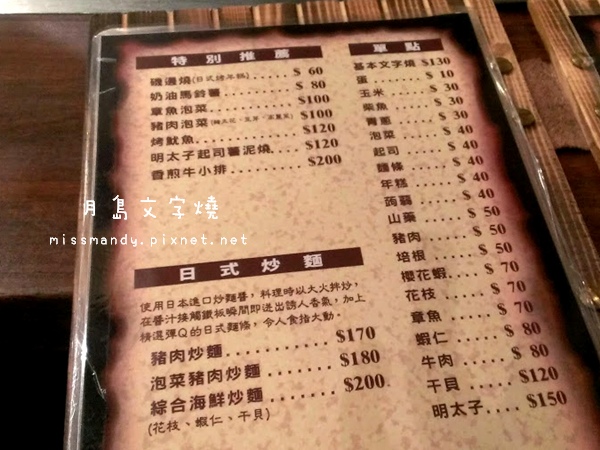 特別推薦
磯邊燒(日式烤年糕)......$ 60
奶油馬鈴薯.........$ 80
章魚泡菜.........$100
豬肉泡菜
$100
烤魷魚.........$120
明太子起司薯泥燒...$120
香煎牛小排.........$200
日式炒麵
使用日本進口炒麵醬，料理時以大火拌炒，
在醬汁接觸鐵板瞬間即迸出誘人香氣，加上
精選彈Q的日式麵條，令人食指大動。
豬肉炒麵............$170
泡菜豬肉炒麵.......$180
綜合海鮮炒麵.......$200
(花枝、蝦仁、干貝)
單點
基本文字燒 $130
蛋.........$ 10
玉米.......$ 30
柴魚.......$ 30
青蔥.......$ 30
泡菜.......$ 40
起司.......$ 40
麵條.......$ 40
年糕.......$ 40
蒟蒻.......$ 40
山藥.......$ 50
豬肉.......$ 50
培根.......$ 50
櫻花蝦.....$ 70
花枝.......$ 70
章魚.......$ 70
蝦仁.......$ 80
牛肉.......$ 80
干貝.......$120
明太子.....$150
月島文字燒
missmandy.pixnet.net